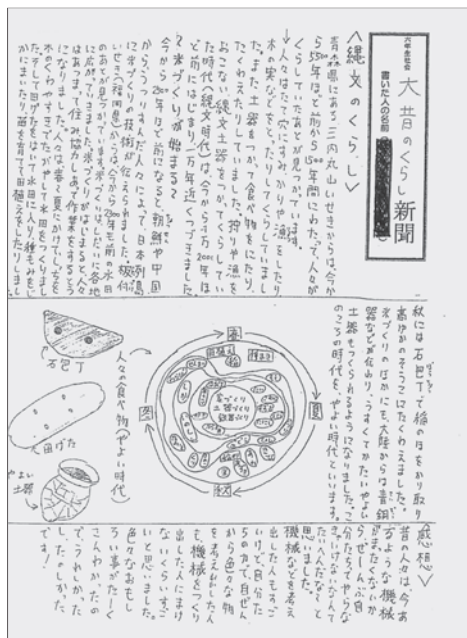 六年生社会
大昔のくらし新聞
書いた人の名前
〈縄文のくらし〉
青森県にある三内丸山いせきからは、今か
ら5500年ほど前から1500年間にわたって、人々が
くらしていたあとが見つかっています。
人々はたて穴にすみ、かりや漁をしたり、
木の実などをとったりしてくらしていまし
た。また土器をつかって食べ物をにたり、
たくわえたりしていました。狩りや漁を
おこない縄文土器をつかてくらしてい
た時代(縄文時代)は、今から1万2000年ほ
ど前にはじまり1万年近くつづきました。
米づくりが始まる
今から2400年ほど前になると、朝鮮や中国
から、うつりすんだ人々によって、日本列島
に米づくりの技術が伝えられました。板付
いせき(福岡県)からは、今から2300年も前の水田
のあとが見つかっています。米づくりは、しだいに各地
に広がっていきました。米づくりがはじまると、人々
はあつまって住み、協力しあって作業をするよう
になりました。人々は、春、夏にかけて、しちを
木のくわやすきでたがやして水田をつくりまし
た。そして田げたをはいて水田に入り、種もみをじ
かにまいたり、苗を育てて田植えをしたりしまし
秋には石包丁で稲のほをかり取り
高ゆかのそうこにたくわえました。
米づくりのほかにも、大陸からは青銅
器などが伝わり、うすくてかたいやよい
土器もつくられるようになりました。こ
のころの時代を、やよい時代といいます。
春
夏
秋
冬
家づくり
土器づくり
人々の食べ物(やよい時代)
石包丁
田げた
やよい
土器
感想〉
昔の人々は、今あ
るような機械
がまったくないか
ら、ぜーんぶ自
分たちでやらな
きゃいけないなんて
たいへんだなぁと
思いました。
機械などを考え
出した人もすご
いけど、自分た
ちの力で、自ぜん
から色々な物
を考え出した人
も、機械をつくり
出した人にまけ
ないくらいすご
いと思いました。
色々なおもし
ろい事がたーく
さんわかったの
で、うれしかった
し、たのしかった
です!